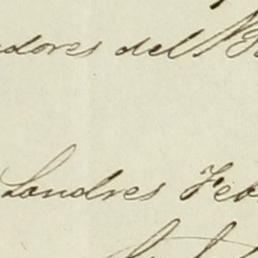 adores del
Londres Feb